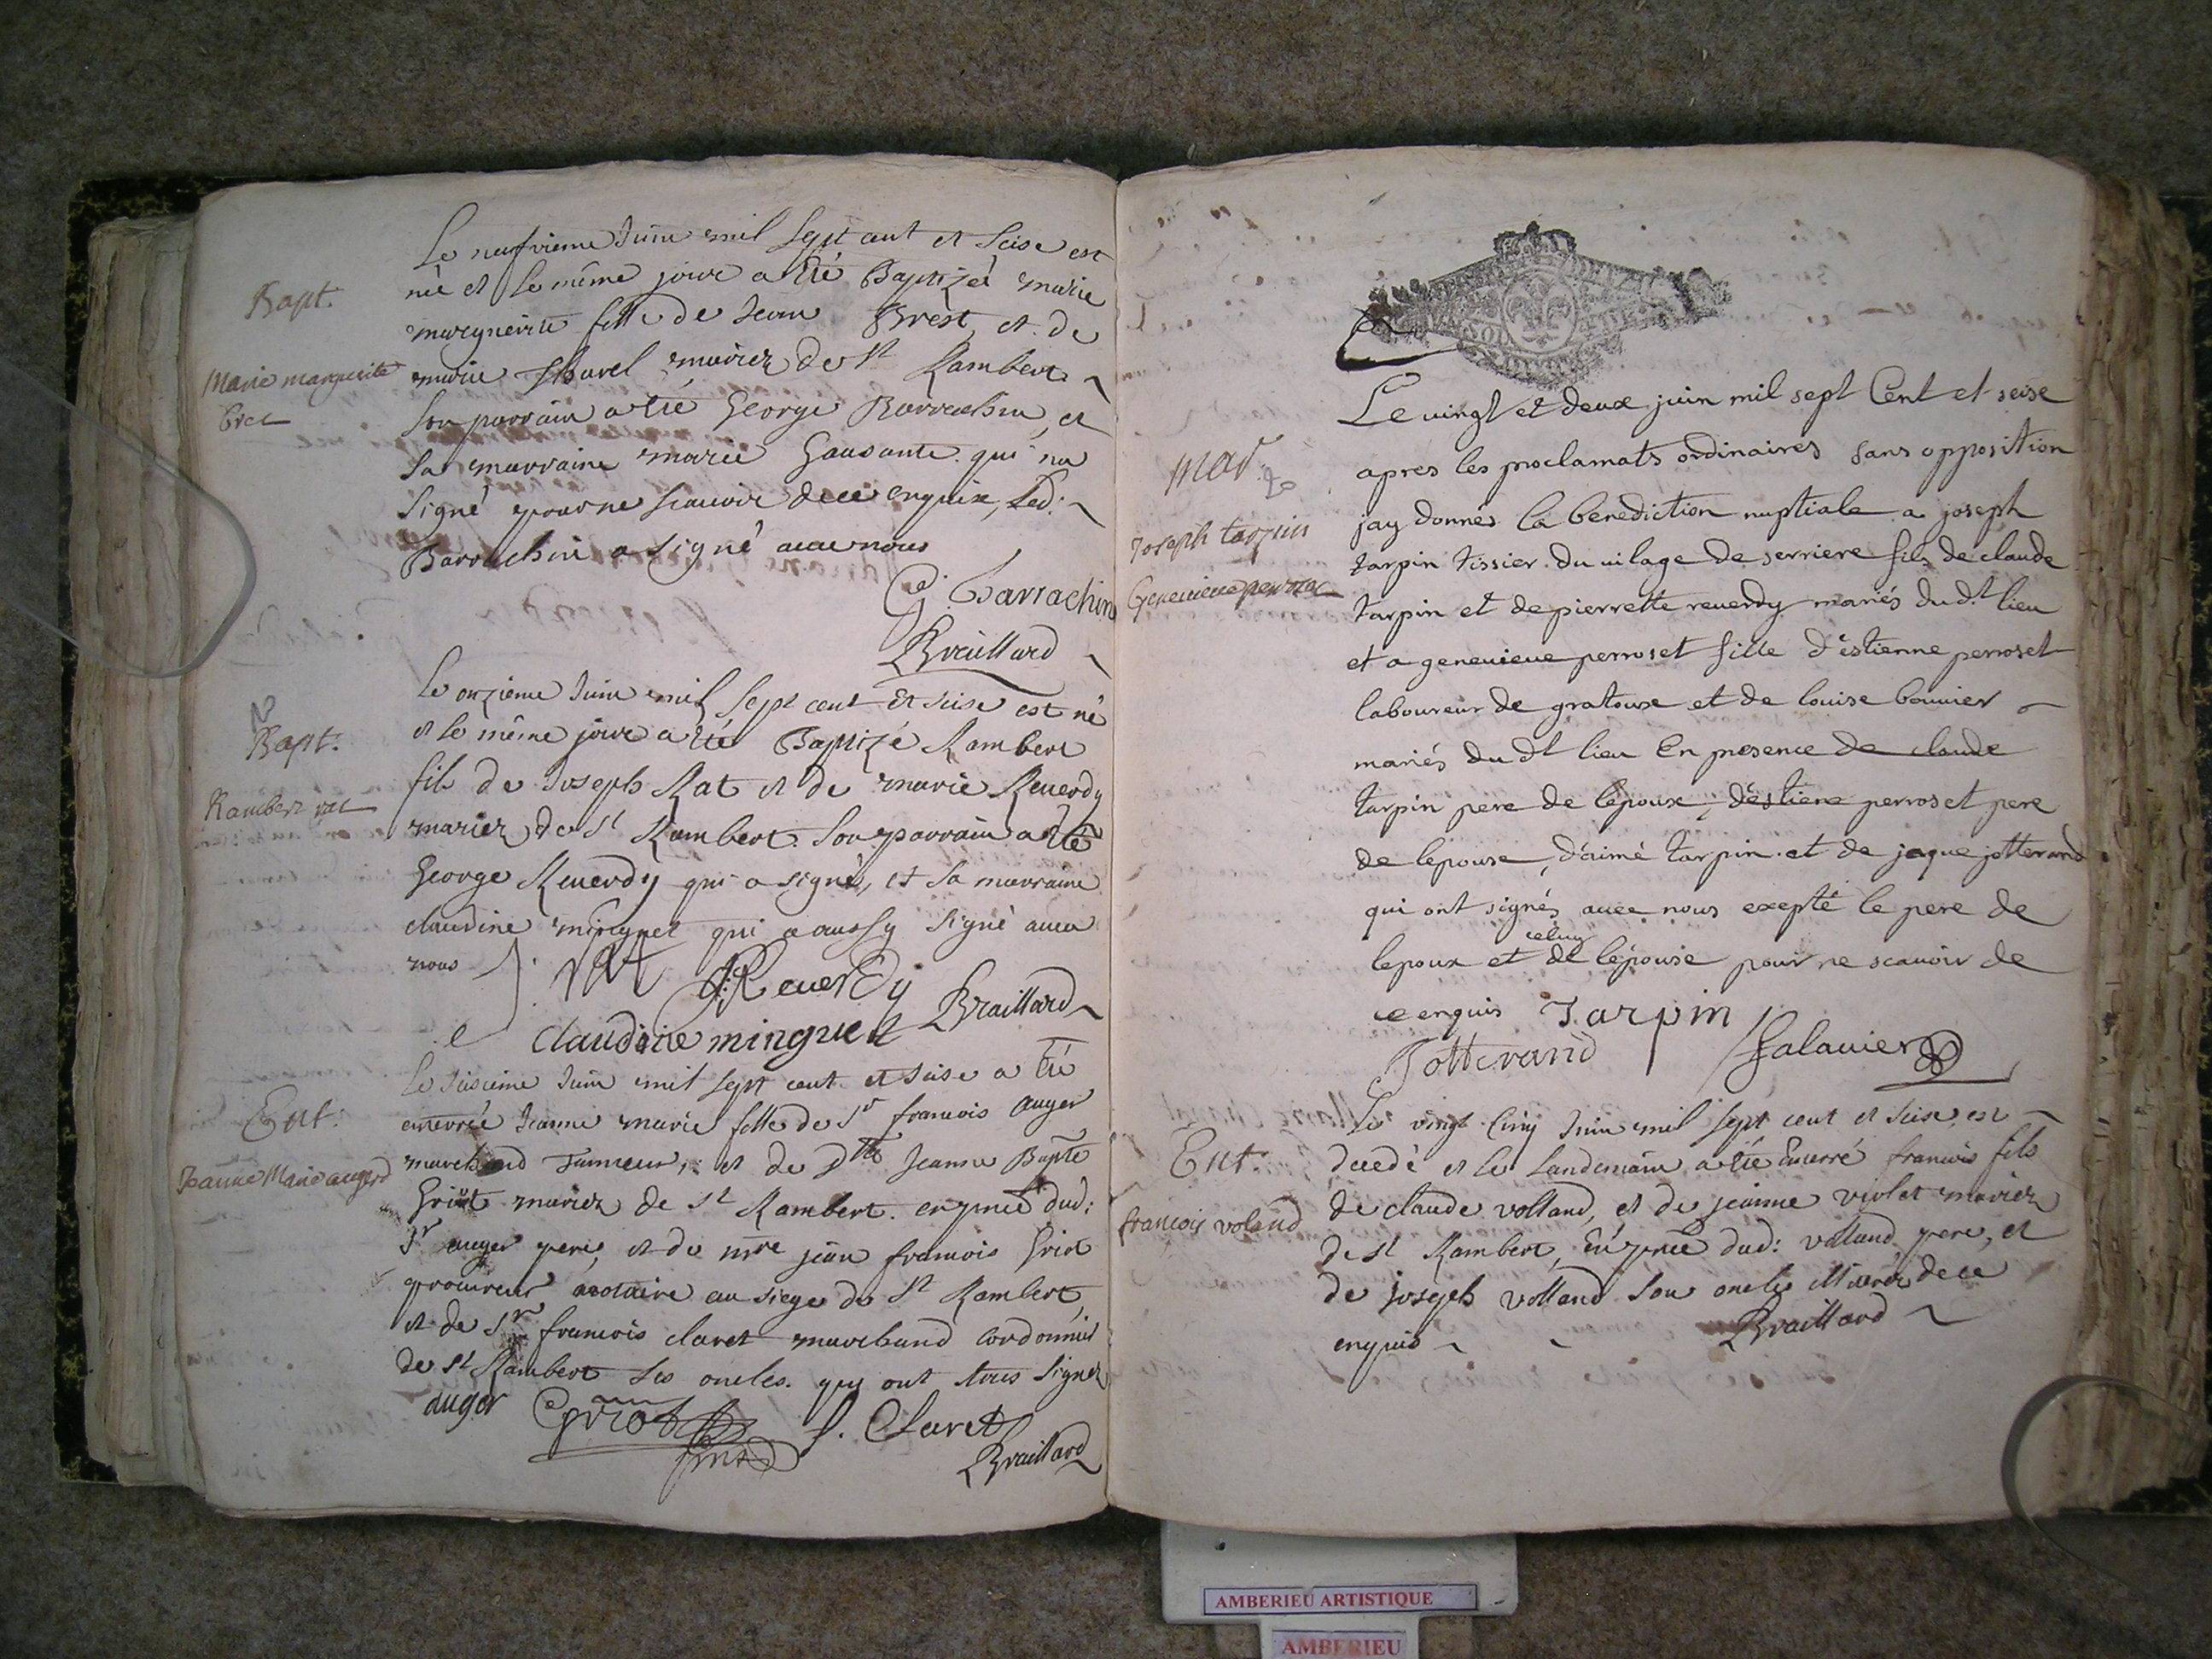 Le neufvieme Juin mil sept cent et seise est
Bapt.
née et le même jour a été Baptizée marie
marguerite fille de Jean Brest, et de
Marie marguerite
bret
marie mariez de St Rambert
son parrain a été George Barrachin, et
sa marraine marie Gausante qui na
signé pour ne scavoir de ce enquise, led:
Barrachin a signé avec nous
G. Barrachin
Braillard
Le onzieme Juin mil sept cent et seise est né
Bapt.
et le même jour a été Baptizé Rambert
fils de Joseph Rat et de marie Reverdy
Rambert rat
mariez de St Rambert son parrain a été
George Reverdy qui a signé, et sa marraine
claudine minguet qui a aussy signé avec
nous
rat G. Reverdy Braillard
claudine minguet
Le seisieme Juin mil sept cent et seise a été
Ent:
enterrée Jeanne marie fille de Sr francois auger
marchand Tanneur, et de Dlle Jeanne Bapte
Jeanne Marie augerd
Griot mariez de St Rambert. en pnce dud:
Sr auger pere, et de mre jean francois Griot
procureur et notaire au siege de St Rambert,
et de Sr francois claret marchand cordonnier
de St Rambert ses oncles. quy ont tous signez
auger Griot f. Claret
Braillard
Le vingt et deux juin mil sept Cent et seise
mar.
apres les proclamats ordinaires sans opposition
jay donnés la benediction nuptiale a joseph
Joseph tarpin
tarpin tissier du vilage de serriere fils de claude
Genevieve perrozet
tarpin et de pierrette reverdy mariés du dt lieu
et a genevieve perroset fille d'estienne perroset
laboureur de gratoux et de louise bouvier
mariés du dt lieu En presence de claude
tarpin pere de lepoux, d'estiene perroset pere
de lepouse, d'aimé tarpin et de jaque jotterand
qui ont signés avec nous exepté le pere de
lepoux et celuy de lépouse pour ne scavoir de
ce enquis Tarpin
Jotterand Salavier
Le vingt cinq Juin mil sept cent et seise, est
Ent:
decedé et le landemain a été Enterré francois fils
de claude volland, et de jeanne violet mariez
francois voland
de St Rambert, En pnce dud: volland pere, et
de joseph volland son oncle illiterez de ce
enquis Braillard
AMBERIEU ARTISTIQUE
AMBERIEU